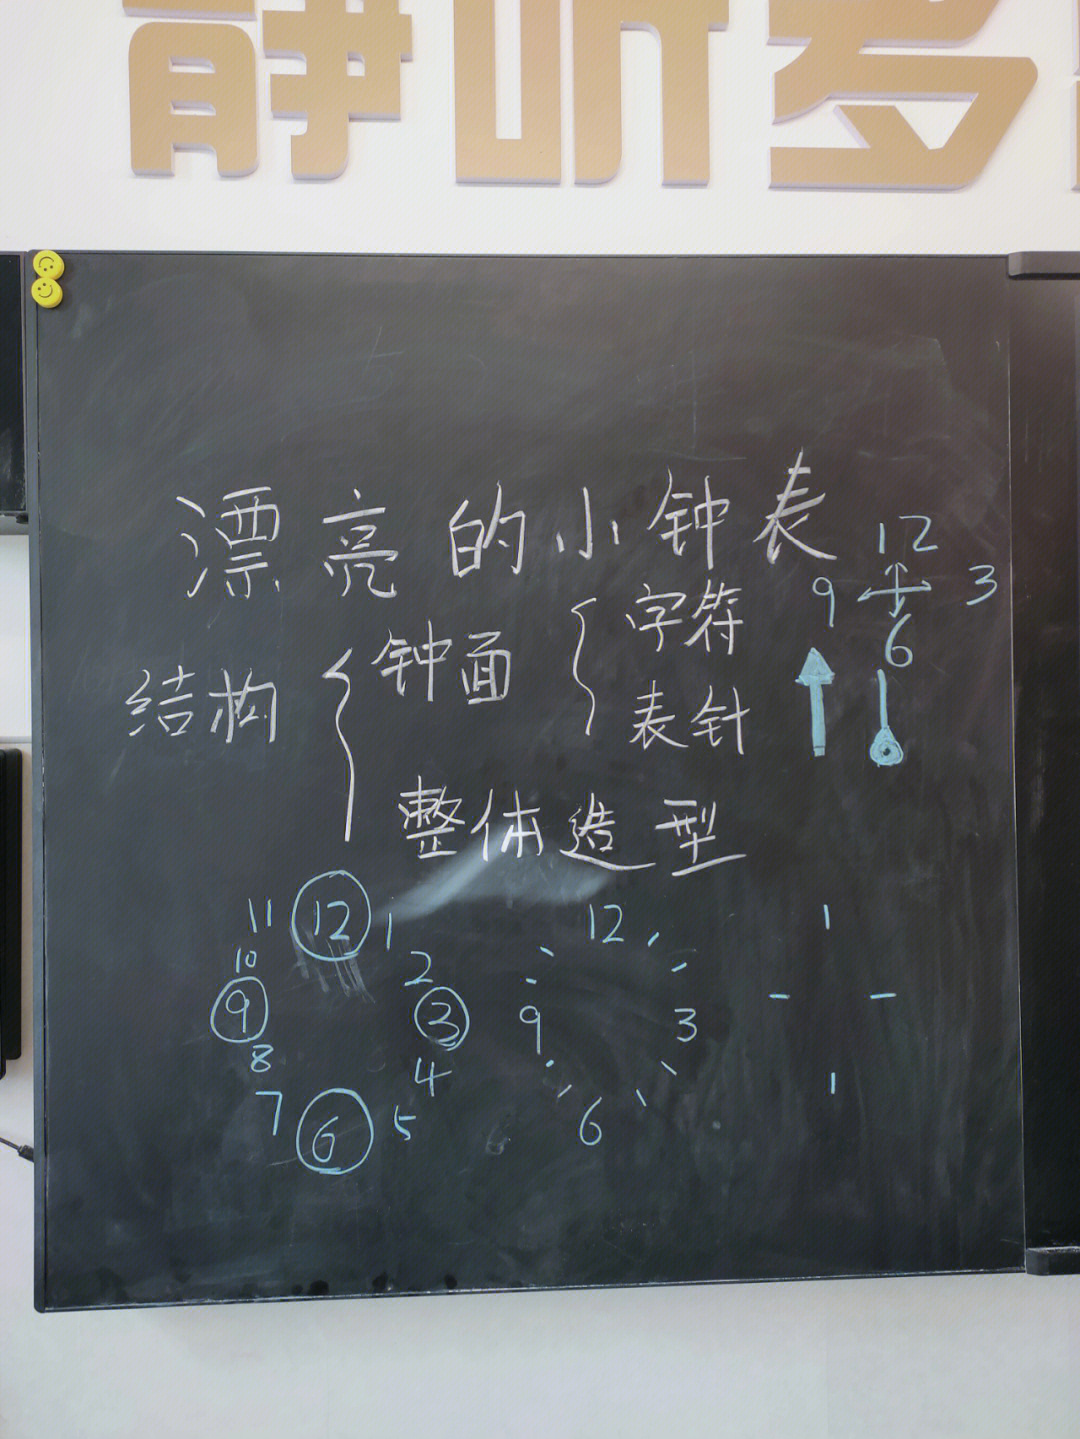 静听
漂亮的小钟表
12
9 3
6
结构 钟面 字符
表针
整体造型
11 12 1
10 2
9 3
8 4
7 6 5
12
9 3
6